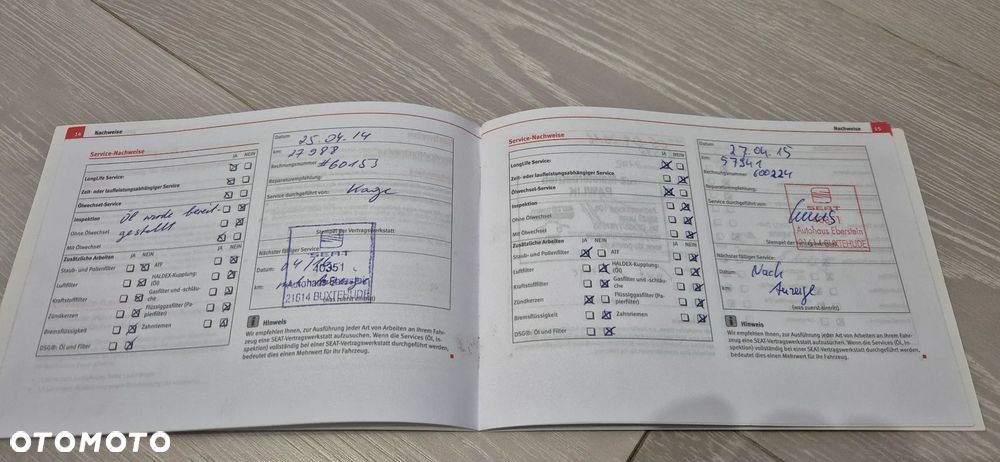 14 Nachweise
Service-Nachweise
JA NEIN
LongLife Service:
Zeit- oder laufleistungsabhängiger Service
Ölwechsel-Service
Inspektion
Öl wurde bereit-
gestellt
Ohne Ölwechsel
Mit Ölwechsel
Zusätzliche Arbeiten JA NEIN JA NEIN
Staub- und Pollenfilter ATF
Luftfilter HALDEX-Kupplung: (Öl)
Kraftstofffilter Gasfilter und -schläuche
Zündkerzen Flüssiggasfilter (Papierfilter)
Bremsflüssigkeit Zahnriemen
DSG®: Öl und Filter
Datum 25.04.14
km: 27988
Rechnungsnummer #60153
Reparaturempfehlung:
Service durchgeführt von:
Stempel der Vertragswerkstatt
Nächster fälliger Service:
Datum: 04/16
km:
SEAT
40351
Autohaus Eberstein
21614 BUXTEHUDE
(was zuerst eintritt)
Hinweis
Wir empfehlen Ihnen, zur Ausführung jeder Art von Arbeiten an Ihrem Fahr-
zeug eine SEAT-Vertragswerkstatt aufzusuchen. Wenn die Services (Öl, In-
spektion) vollständig bei einer SEAT-Vertragswerkstatt durchgeführt werden,
bedeutet dies einen Mehrwert für Ihr Fahrzeug.
Nachweise 15
Service-Nachweise
JA NEIN
LongLife Service:
Zeit- oder laufleistungsabhängiger Service
Ölwechsel-Service
Inspektion
Ohne Ölwechsel
Mit Ölwechsel
Zusätzliche Arbeiten JA NEIN JA NEIN
Staub- und Pollenfilter ATF
Luftfilter HALDEX-Kupplung: (Öl)
Kraftstofffilter Gasfilter und -schläuche
Zündkerzen Flüssiggasfilter (Papierfilter)
Bremsflüssigkeit Zahnriemen
DSG®: Öl und Filter
Datum 27.04.15
km: 57341
Rechnungsnummer 600224
Reparaturempfehlung:
Service durchgeführt von:
SEAT
40351
Autohaus Eberstein
21614 BUXTEHUDE
Nächster fälliger Service:
Datum: Nach
km: Anzeige
(was zuerst eintritt)
Hinweis
Wir empfehlen Ihnen, zur Ausführung jeder Art von Arbeiten an Ihrem Fahr-
zeug eine SEAT-Vertragswerkstatt aufzusuchen. Wenn die Services (Öl, In-
spektion) vollständig bei einer SEAT-Vertragswerkstatt durchgeführt werden,
bedeutet dies einen Mehrwert für Ihr Fahrzeug.
OTOMOTO